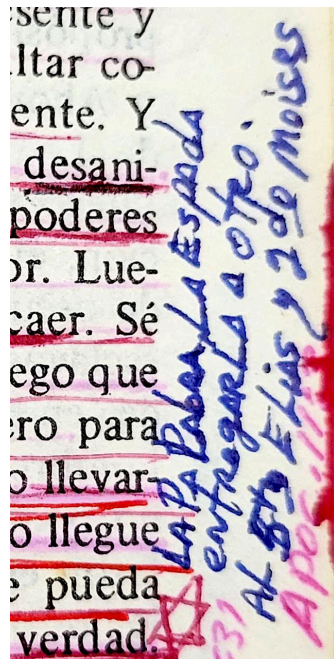 sente y
ltar co-
ente. Y
desani-
poderes
or. Lue-
caer. Sé
ego que
ero para
o llevar-
o llegue
e pueda
verdad.
LA PA Palabra LA ESPADA
entregarla a otro.
AL 8vo ELIAS y 2 de Moises